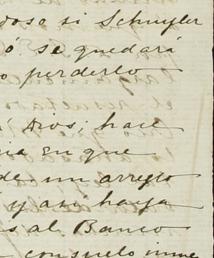 doso si Schuyler
ó se quedará
o perderlo
Dios; hace
en que
de un arreglo
y asi haya
s al Banco
consuelo